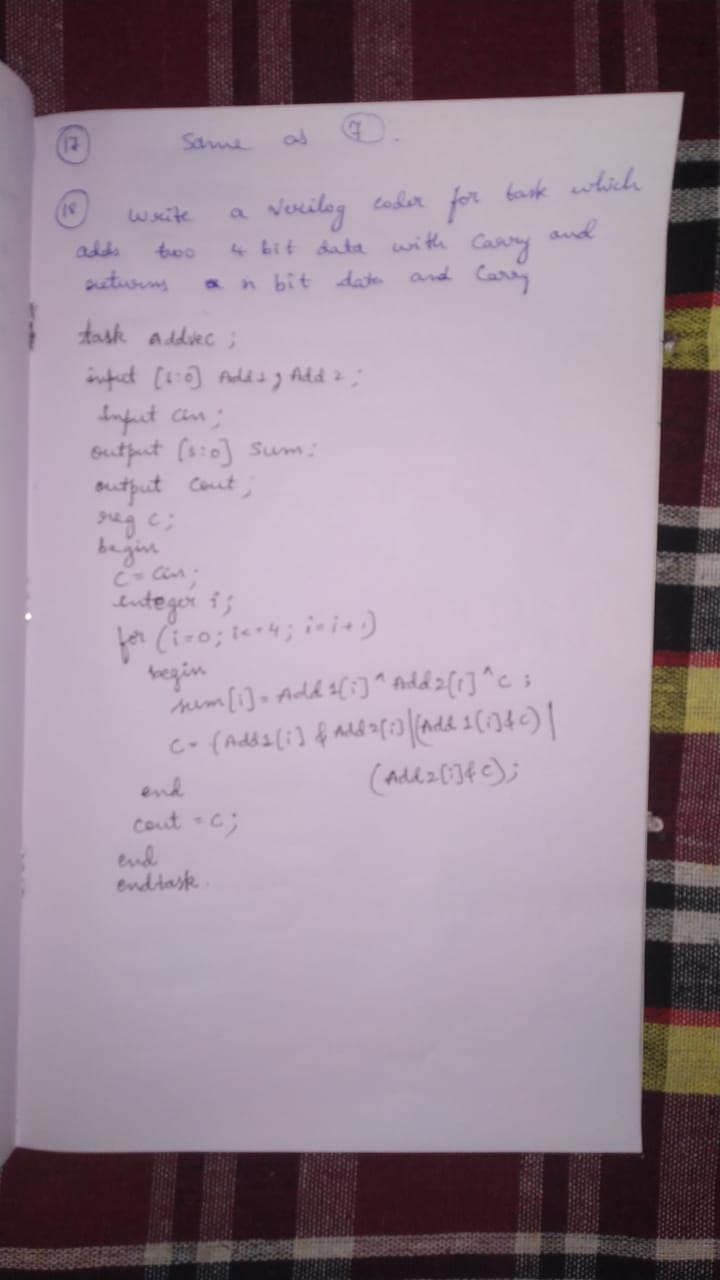 17 Same as 7.
18 Write a Verilog coder for task which
adds two 4 bit data with Carry and
returns a n bit data and Carry
task addvec;
input [3:0] Add1, Add2;
Input cin;
output [3:0] Sum;
output Cout;
reg c;
begin
C = Cin;
integer i;
for (i=0; i<=4; i=i+1)
begin
sum[i] = Add1[i] ^ Add2[i] ^ C ;
C = (Add1[i] & Add2[i] | (Add1[i] & C) |
(Add2[i] & C);
end
cout = C;
end
endtask.